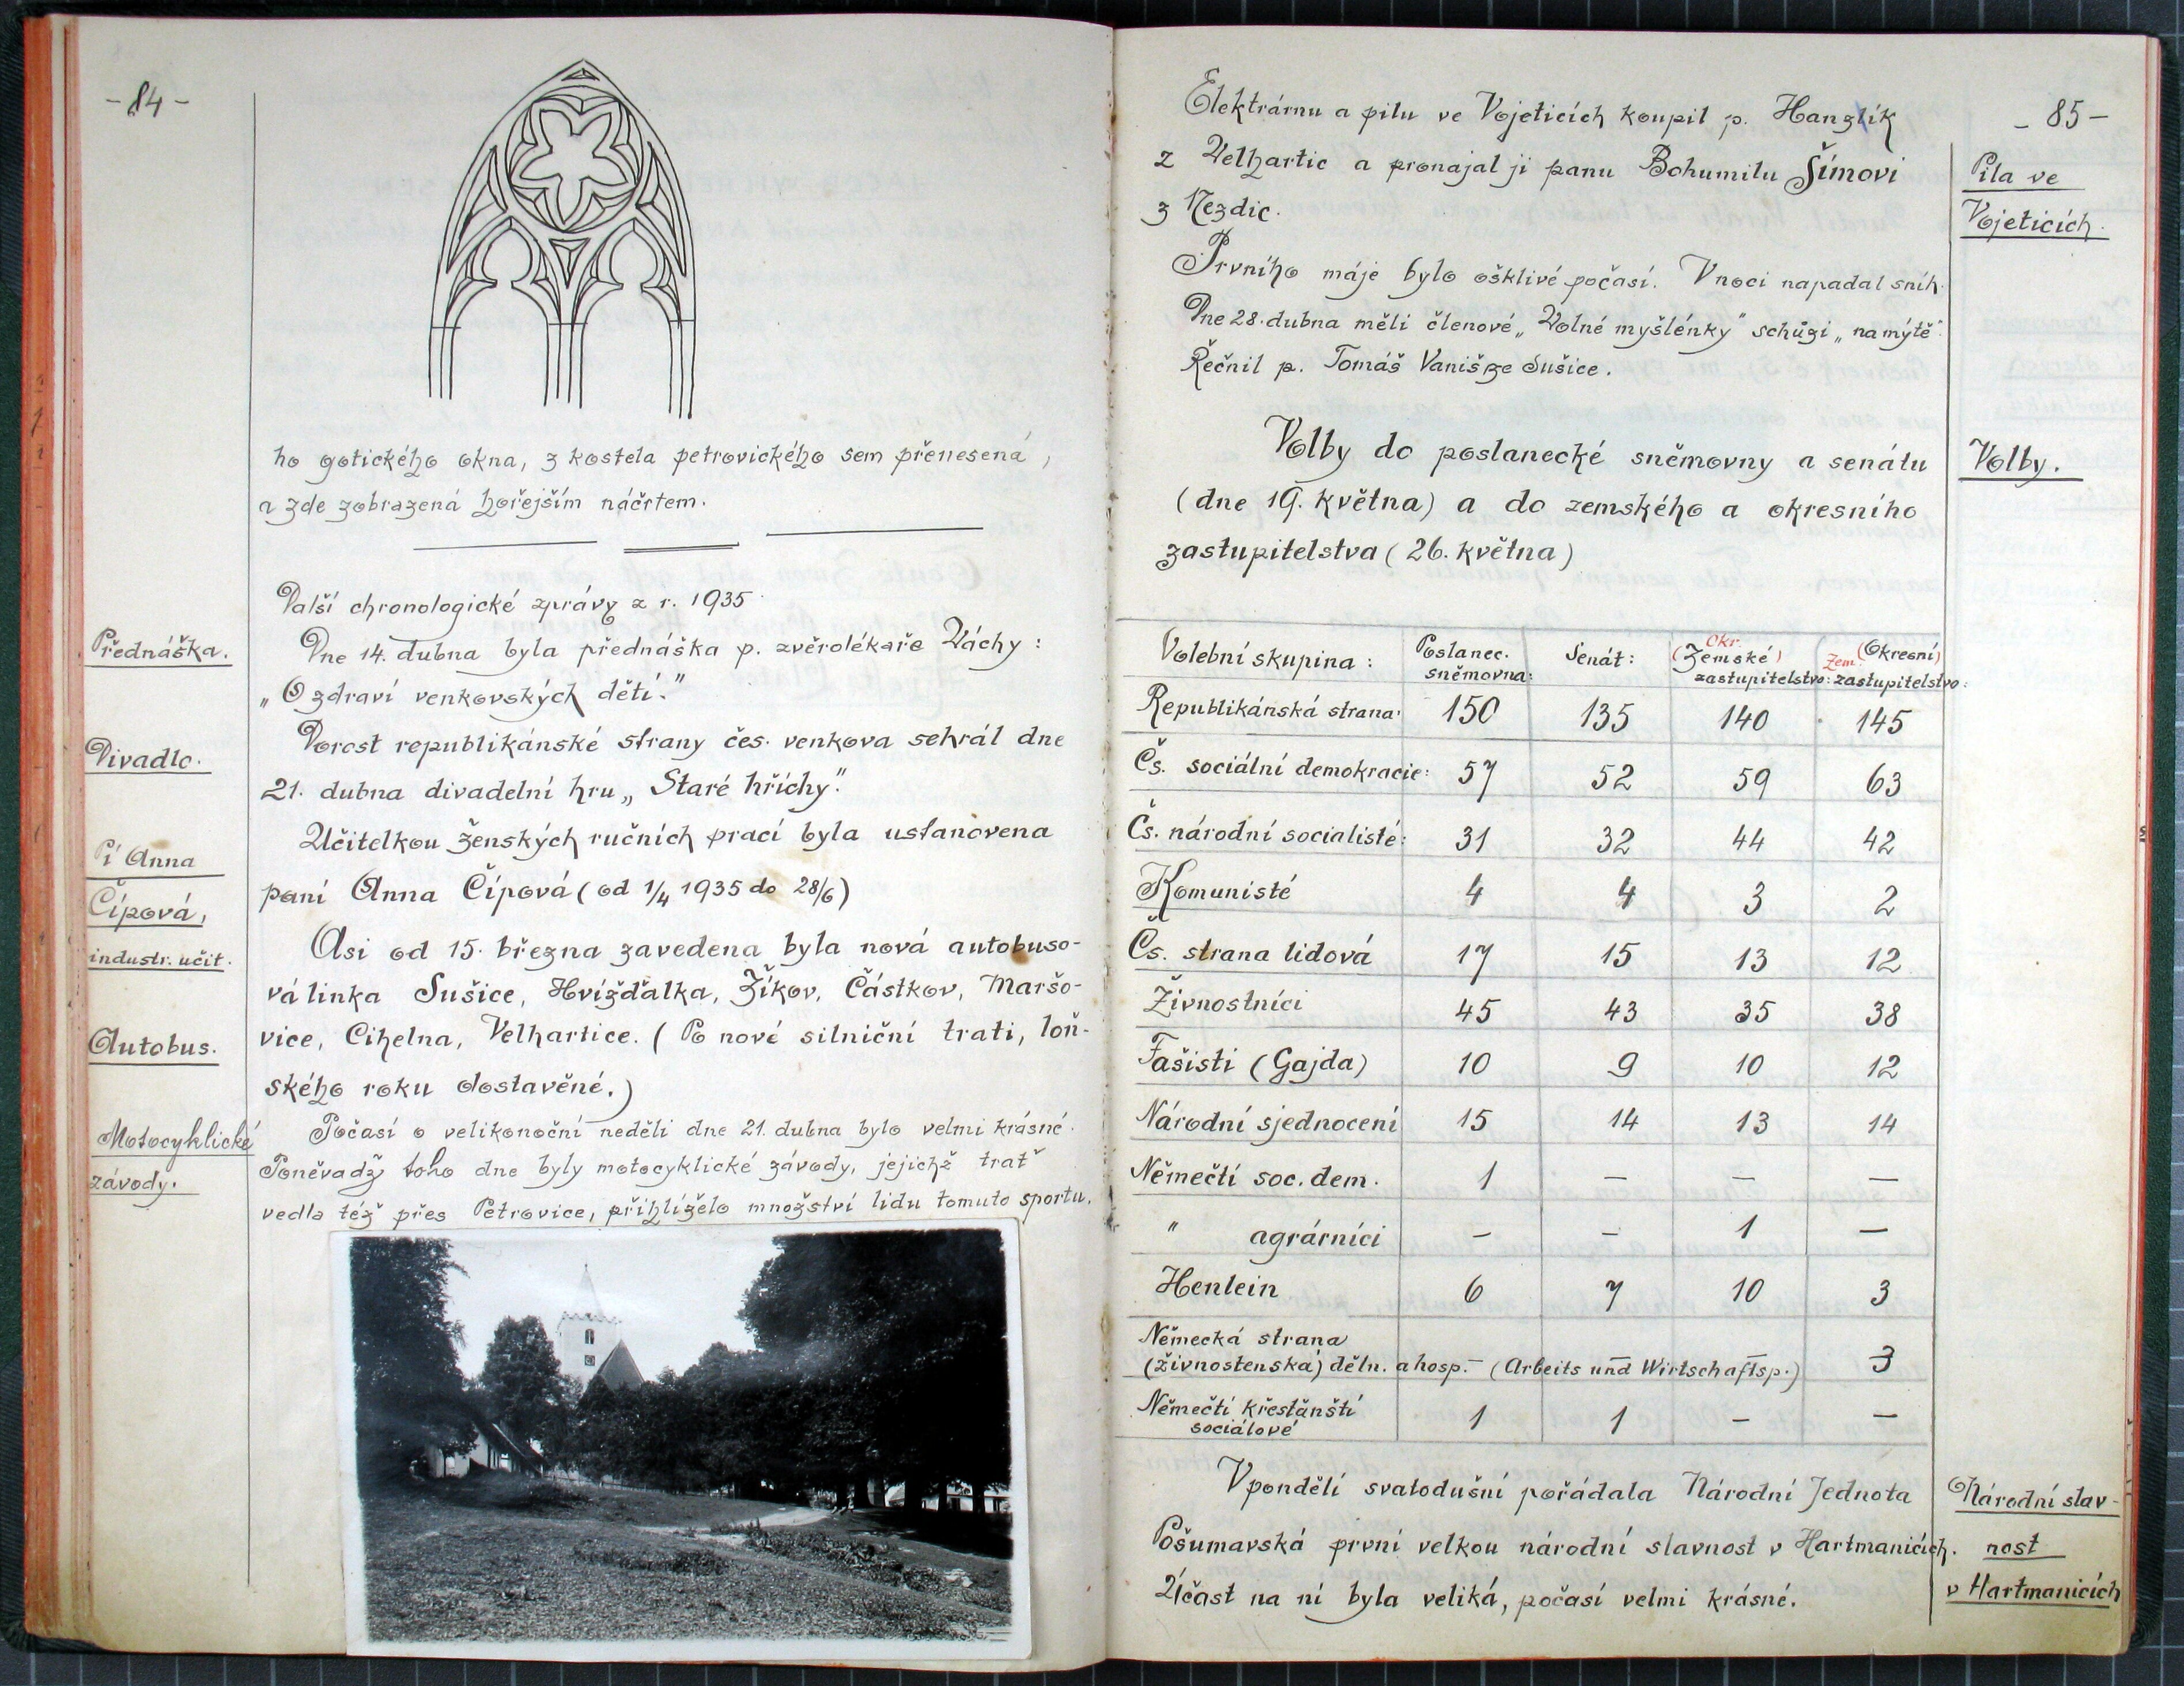 - 84 -
ho gotického okna, z kostela petrovického sem přenesená,
a zde zobrazená hořejším náčrtem.
Další chronologické zprávy z r. 1935.
Přednáška.
Dne 14. dubna byla přednáška p. zvěrolékaře Váchy:
„O zdraví venkovských dětí."
Divadlo.
Dorost republikánské strany čes. venkova sehrál dne
21. dubna divadelní hru „Staré hříchy".
Pí Anna
Čípová,
industr. učit.
Učitelkou ženských ručních prací byla ustanovena
paní Anna Čípová (od 1/4 1935 do 28/6)
Asi od 15. března zavedena byla nová autobuso-
vá linka Sušice, Hvížďalka, Žíkov, Částkov, Maršo-
Autobus.
vice, Cihelna, Velhartice. (Po nové silniční trati, loň-
ského roku dostavěné.)
Motocyklické
závody.
Počasí o velikonoční neděli dne 21. dubna bylo velmi krásné.
Poněvadž toho dne byly motocyklické závody, jejichž trať
vedla též přes Petrovice, přihlíželo množství lidu tomuto sportu.
- 85 -
Elektrárnu a pilu ve Vojeticích koupil p. Hanzlík
z Velhartic a pronajal ji panu Bohumilu Šímovi
z Nezdic.
Pila ve
Vojeticích.
Prvního máje bylo ošklivé počasí. V noci napadal sníh.
Dne 28. dubna měli členové „Volné myšlénky" schůzi „na mýtě".
Řečnil p. Tomáš Vaniš ze Sušice.
Volby.
Volby do poslanecké sněmovny a senátu
(dne 19. května) a do zemského a okresního
zastupitelstva (26. května)
Volební skupina: Poslanec. sněmovna: Senát: Okr. (Zemské) zastupitelstvo: Zem. (Okresní) zastupitelstvo:
Republikánská strana: 150 135 140 145
Čs. sociální demokracie: 57 52 59 63
Čs. národní socialisté: 31 32 44 42
Komunisté 4 4 3 2
Čs. strana lidová 17 15 13 12
Živnostníci 45 43 35 38
Fašisti (Gajda) 10 9 10 12
Národní sjednocení 15 14 13 14
Němečtí soc. dem. 1 — — —
" agrárníci — — 1 —
Henlein 6 7 10 3
Německá strana
(živnostenská) děln. a hosp. — (Arbeits und Wirtschaftsp.) 3
Němečtí křesťánští
sociálové 1 1 — —
V pondělí svatodušní pořádala Národní Jednota
Pošumavská první velkou národní slavnost v Hartmanicích.
Účast na ní byla veliká, počasí velmi krásné.
Národní slav-
nost
v Hartmanicích